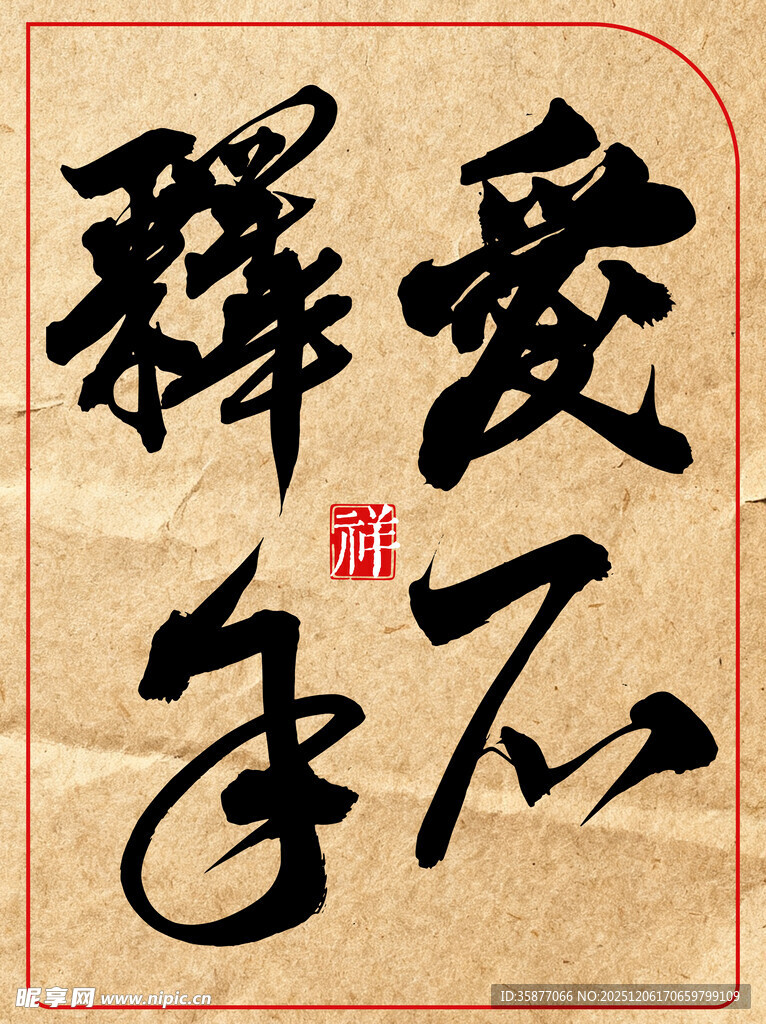 愛不
釋手
祥
昵享网 www.nipic.cn
ID:35877066 NO:20251206170659799109